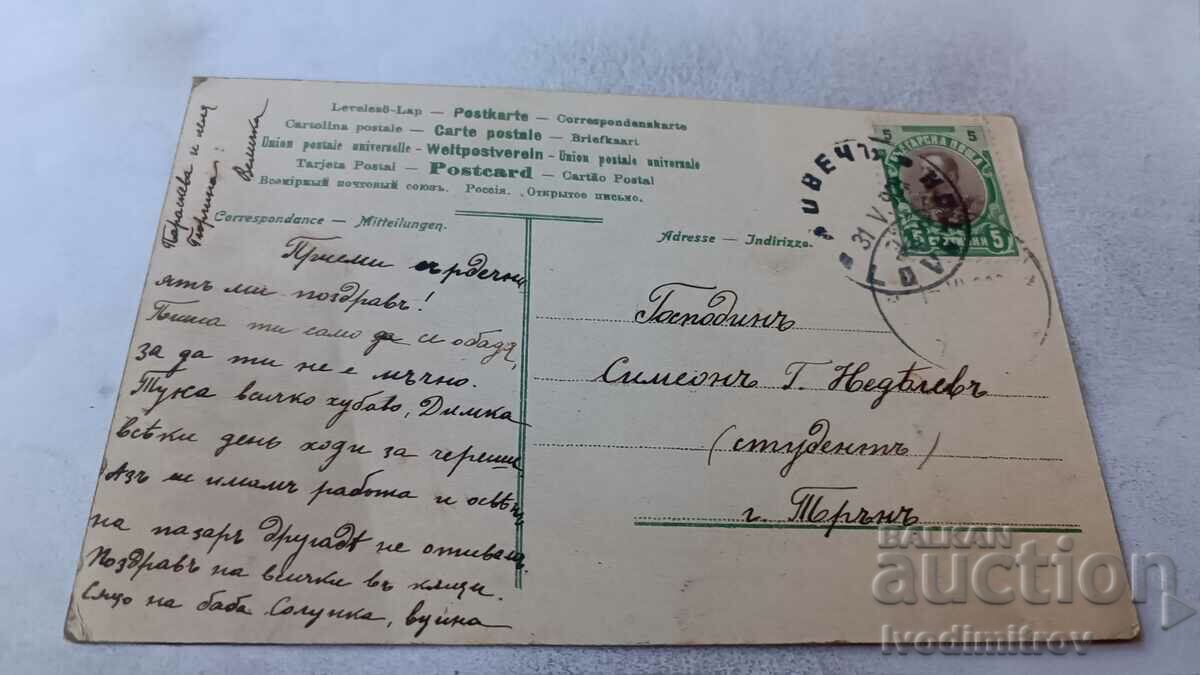 Levelező-Lap — Postkarte — Correspondenskarte
Cartolina postale — Carte postale — Briefkaart
Union postale universelle — Weltpostverein — Union postale universale
Tarjeta Postal — Postcard — Cartão Postal
Всемірный почтовый союзъ. Россія. Открытое письмо.
Correspondance — Mitteilungen.
Adresse — Indirizzo.
Приеми сърдечни
ятъ ми поздравъ!
Пиша ти само да се обадя,
за да ти не е мъчно.
Тука всичко хубаво, Димка
всѣки день ходи за череши
Азъ си имамъ работа и освѣнъ
на пазаръ другадѣ не отивамъ.
Поздравъ на всички въ кѫщи.
Сѫщо на баба Солунка, вуйна
Параскева и леля
Гюргина:
Величка
Господинъ
Симеонъ Г. Недѣлевъ
(студентъ)
г. Трънъ
5 5
БЪЛГАРСКА ПОЩА
5 СТОТИНКИ 5
31 V
BALKAN
auction
Ivodimitrov